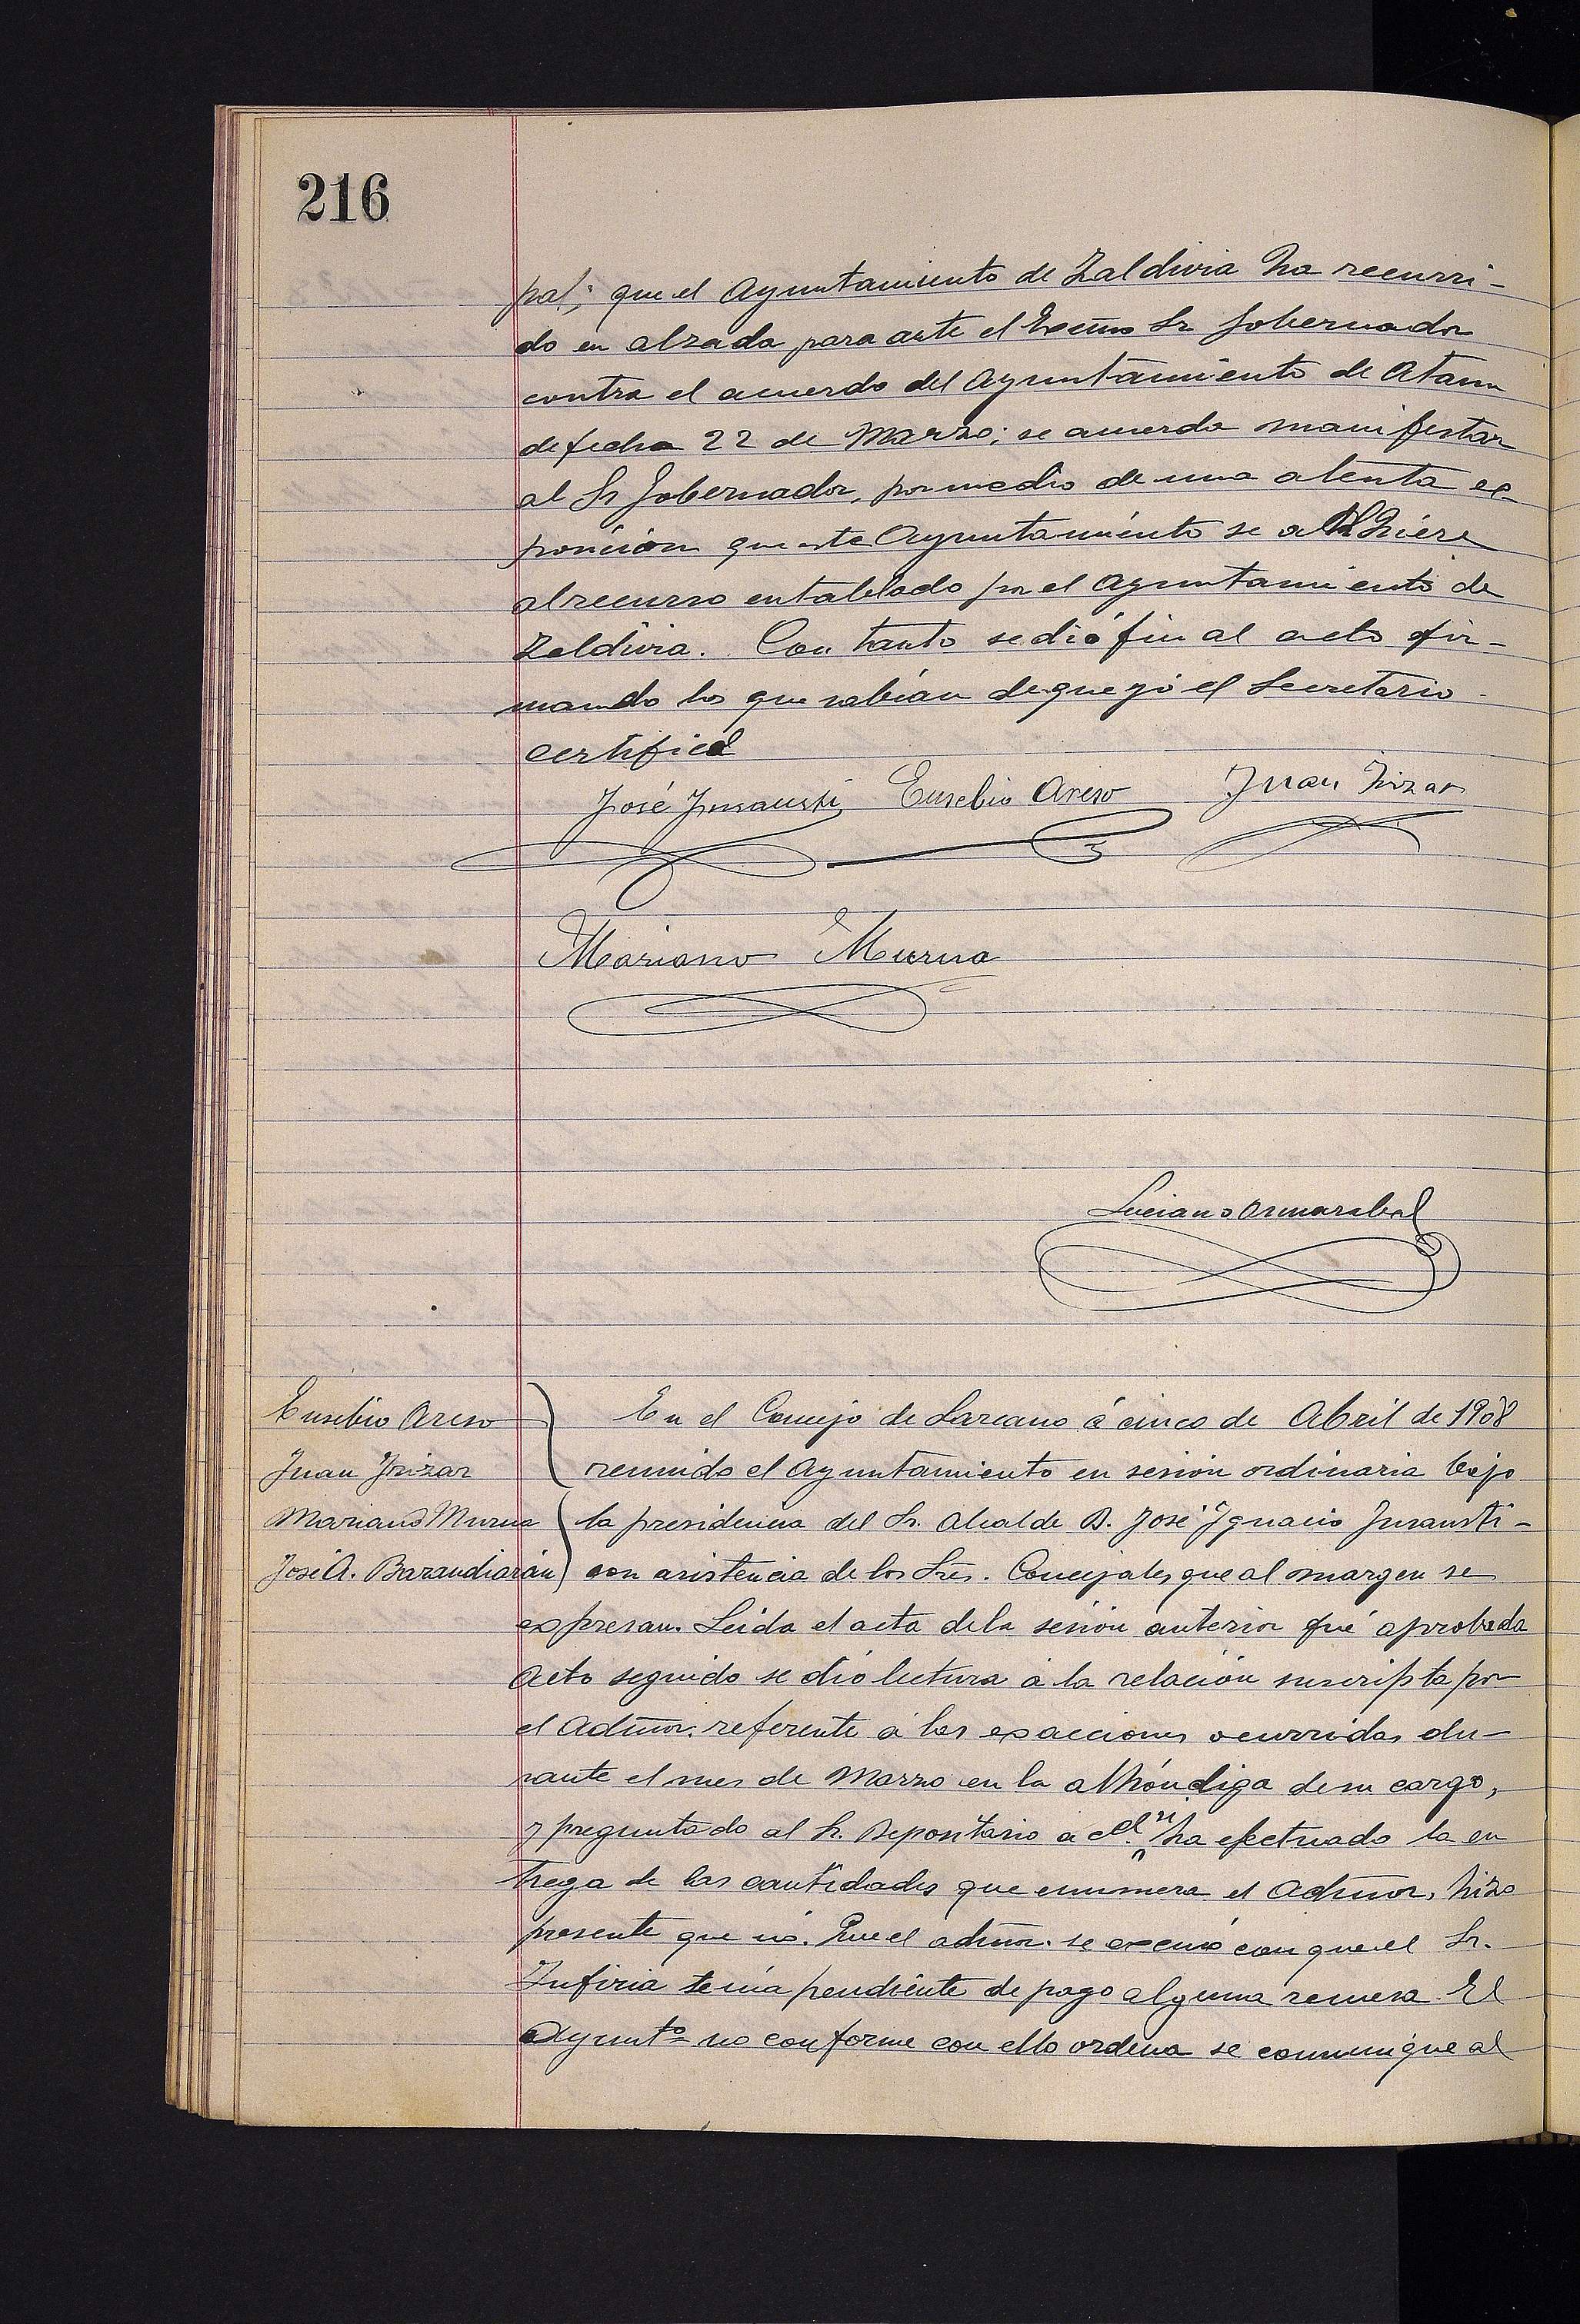 216
pal; que el Ayuntamiento de Zaldivia ha recurri-
do en alzada para ante el Excmo Sr Gobernador
contra el acuerdo del Ayuntamiento de Ataun
de fecha 22 de Marzo; se acuerda manifestar
al Sr Gobernador, por medio de una atenta ex-
posición que este Ayuntamiento se adhiere
al recurso entablado por el Ayuntamiento de
Zaldivia. Con tanto se dió fin al acto fir-
mando los que sabían de que yó el Secretario
certifico
José Insausti Eusebio Areso Juan Irizar
Mariano Murua
Luciano Ormazabal
Eusebio Areso
Juan Irizar
Mariano Murua
José A. Barandiarán
En el Concejo de Lazcano á cinco de Abril de 1908
reunido el Ayuntamiento en sesión ordinaria bajo
la presidencia del Sr. Alcalde D. José Ignacio Insausti-
con asistencia de los Sres. Concejales que al margen se
expresan. Leida el acta de la sesión anterior fué aprobada
Acto seguido se dió lectura á la relación suscripta por
el Admor. referente á las exacciones ocurridas du-
rante el mes de Marzo en la alhóndiga de su cargo,
y preguntado al Sr. Depositario a cel. si ha efectuado la en
trega de las cantidades que enumera el Admor, hizo
presente que nó. Que el admor. se excusó con que el Sr.
Zufiria tenía pendiente de pago alguna remesa. El
Ayuntº no conforme con ello ordena se comunique al